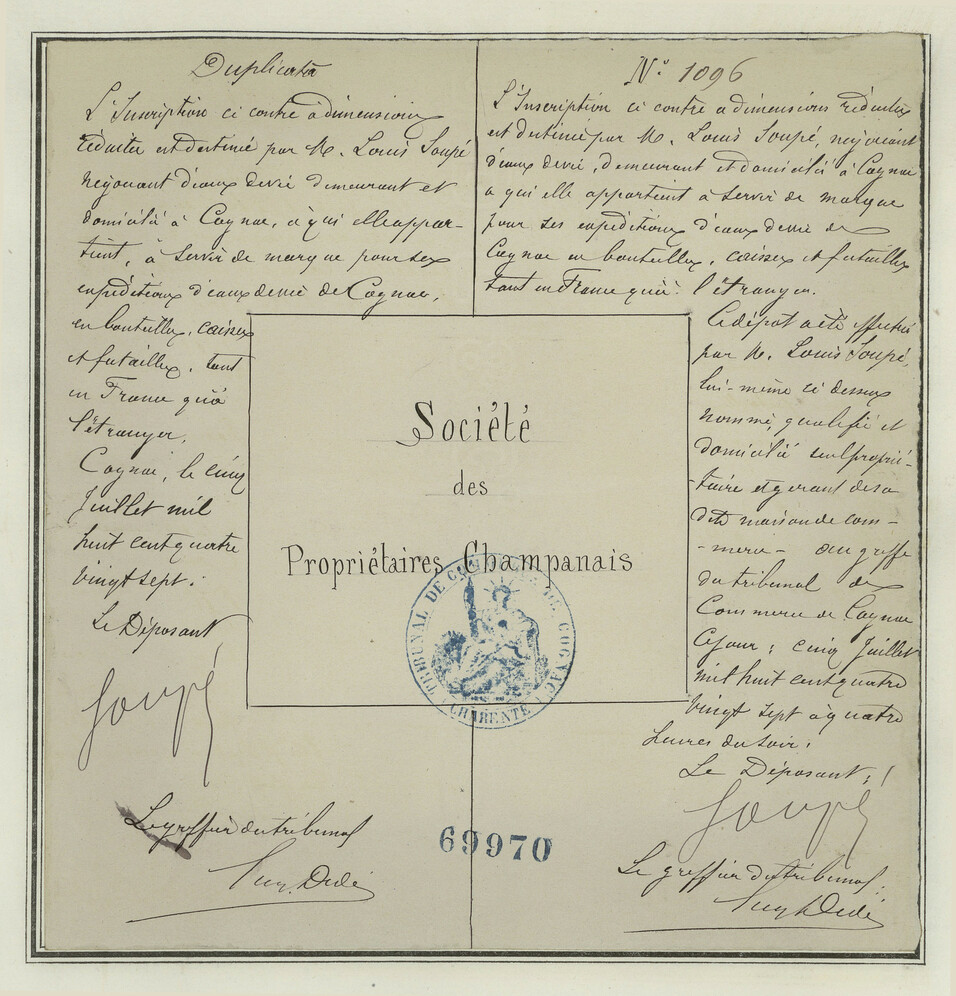 Duplicata
L'Inscription ci contre a dimensions
réduites est destinée par M. Louis Soupé
négociant d'eaux de vie demeurant et
domicilié à Cognac, à qui elle appar-
tient, à servir de marque pour ses
expéditions d'eaux de vie de Cognac,
en bouteilles, caisses
et futailles, tant
en France qu'à
l'étranger.
Cognac, le cinq
Juillet mil
huit cent quatre
vingt sept.
Le Déposant
Soupé
Le greffier du tribunal
N° 1096
L'Inscription ci contre a dimensions réduites
est destinée par M. Louis Soupé, négociant
d'eaux de vie, demeurant et domicilié à Cognac
a qui elle appartient à servir de marque
pour ses expéditions d'eaux de vie de
Cognac en bouteilles, caisses et futailles
tant en France qu'à l'étranger.
Ce dépôt a été effectué
par M. Louis Soupé,
lui-même ci dessus
nommé qualifié et
domicilié seul proprié-
-taire et gérant de sa
dite maison de com-
-merce - au greffe
du tribunal de
Commerce de Cognac
Ce jour; cinq Juillet
mil huit cent quatre
vingt sept à quatre
heures du soir.
Le Déposant;
Soupé
Le greffier du tribunal:
Société
des
Propriétaires Champanais
TRIBUNAL DE COMMERCE DE COGNAC
(CHARENTE)
69970